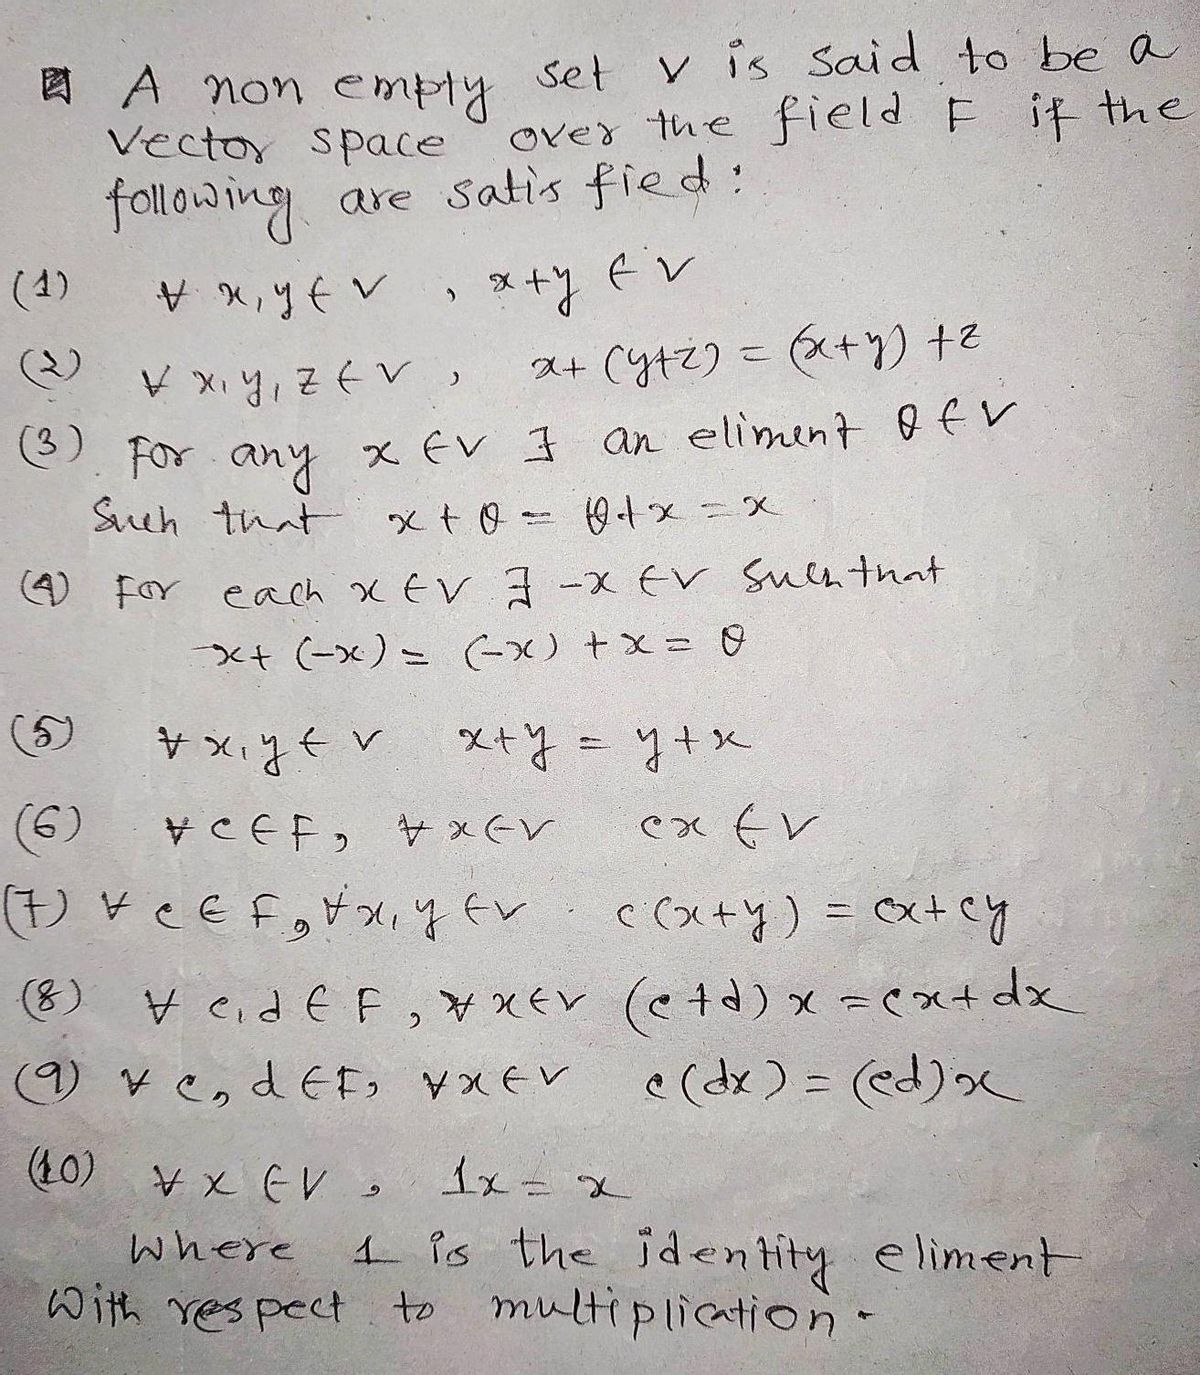 A non empty set V is said to be a
vector space over the field F if the
following are satisfied:
(1) ∀ x, y ∈ V , x+y ∈ V
(2) ∀ x, y, z ∈ V , x+ (y+z) = (x+y) +z
(3). For any x ∈ V ∃ an eliment θ ∈ V
Such that x + θ = θ+x = x
(4) For each x ∈ V ∃ -x ∈ V such that
x+ (-x) = (-x) + x = θ
(5) ∀ x, y ∈ V x+y = y+x
(6) ∀ c ∈ F, ∀ x ∈ V cx ∈ V
(7) ∀ c ∈ F, ∀ x, y ∈ V c(x+y) = cx+cy
(8) ∀ c, d ∈ F, ∀ x ∈ V (c+d) x = cx+dx
(9) ∀ c, d ∈ F, ∀ x ∈ V c(dx) = (cd)x
(10) ∀ x ∈ V , 1x = x
Where 1 is the identity eliment
With respect to multiplication.